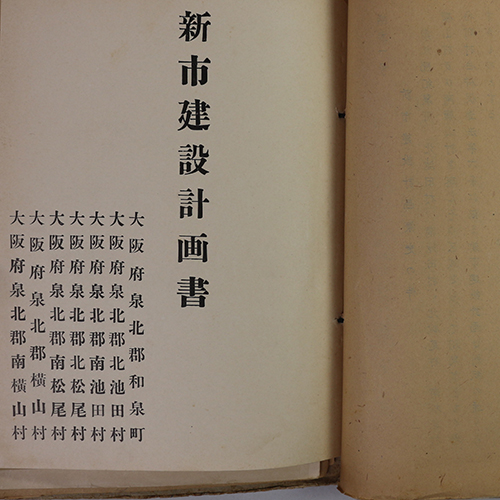 新市建設計画書
大阪府泉北郡和泉町
大阪府泉北郡北池田村
大阪府泉北郡南池田村
大阪府泉北郡北松尾村
大阪府泉北郡南松尾村
大阪府泉北郡横山村
大阪府泉北郡南横山村